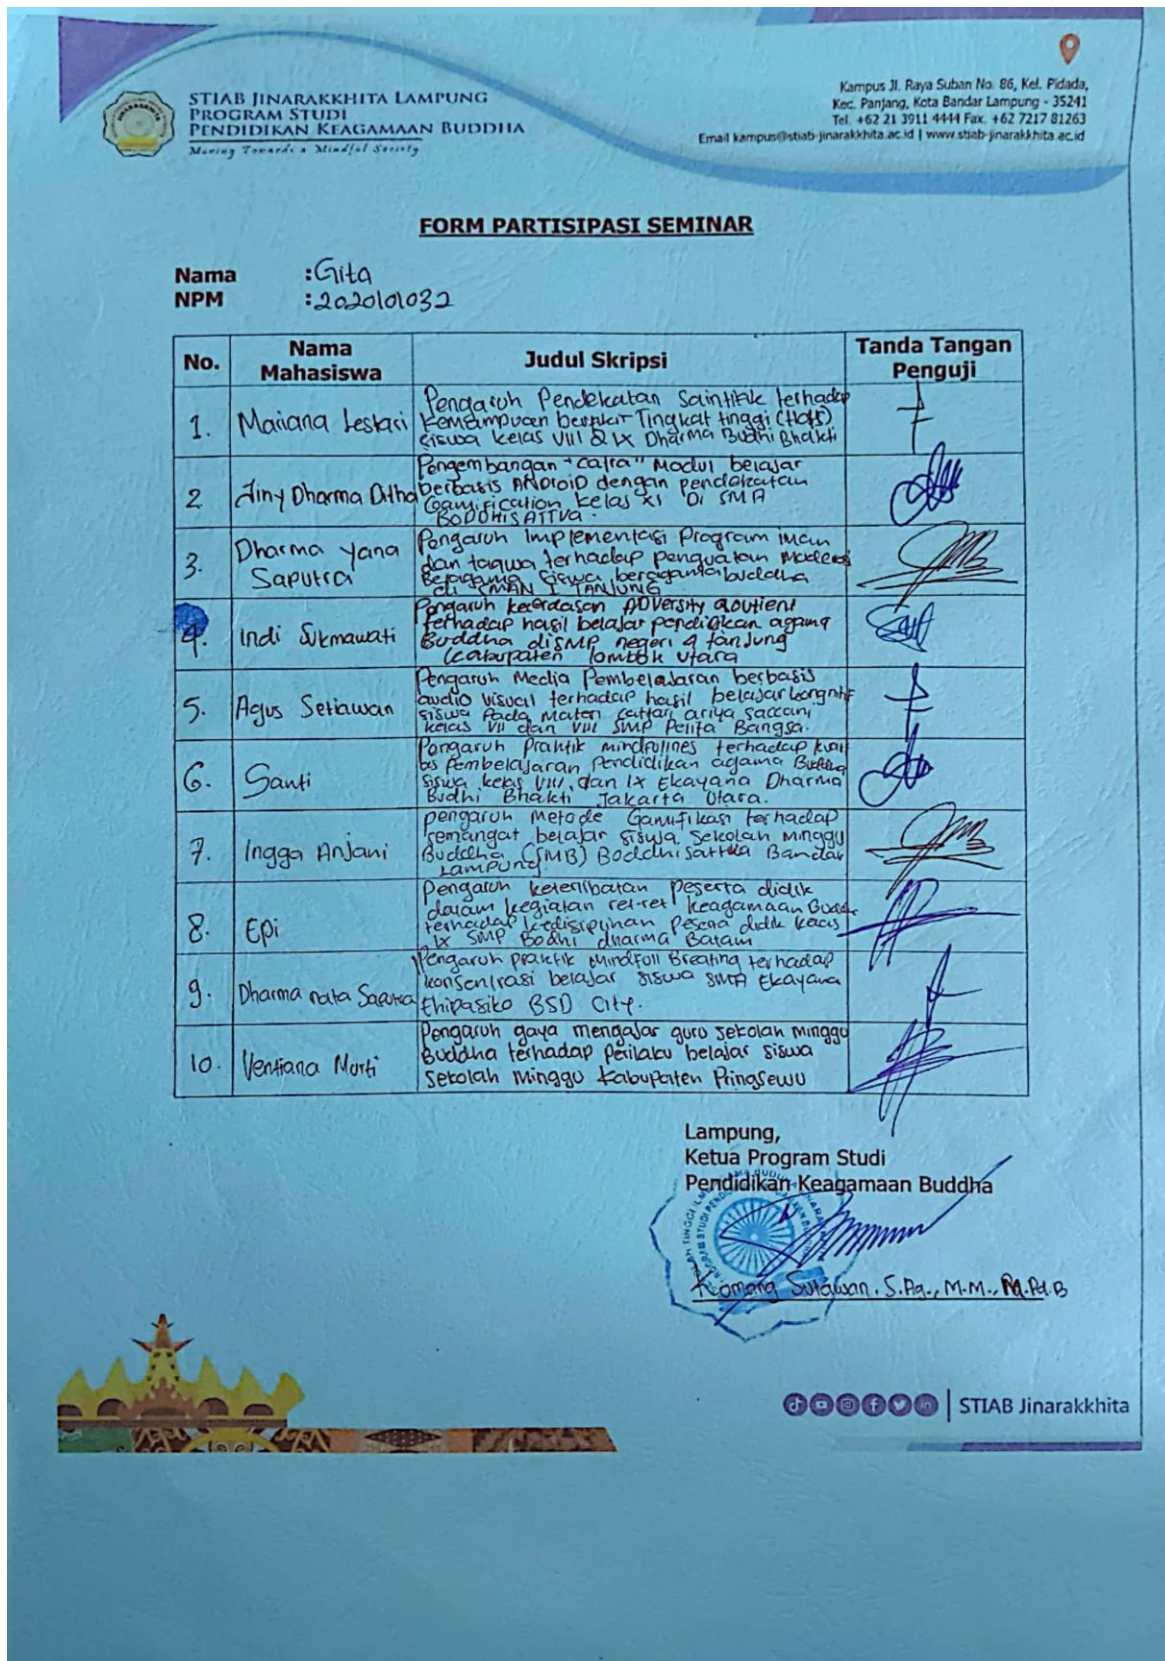 STIAB JINARAKKHITA LAMPUNG
PROGRAM STUDI
PENDIDIKAN KEAGAMAAN BUDDHA
Moving Towards a Mindful Society
Kampus Jl. Raya Suban No. 86, Kel. Pidada,
Kec. Panjang, Kota Bandar Lampung - 35241
Tel. +62 21 3911 4444 Fax. +62 7217 81263
Email kampus@stiab-jinarakkhita.ac.id | www.stiab-jinarakkhita.ac.id
FORM PARTISIPASI SEMINAR
Nama : Gita
NPM : 2020101032
No. Nama Mahasiswa Judul Skripsi Tanda Tangan Penguji
1. Mariana Lestari
Pengaruh Pendekatan Saintifik terhadap
Kemampuan berpikir Tingkat tinggi (HOTS)
siswa kelas VIII & IX Dharma Budhi Bhakti
2 Jiny Dharma Ditha
Pengembangan "Catra" Modul belajar
berbasis ANDroiD dengan pendekatan
Gamification kelas XI Di SMA
BODDHISATTVA.
3. Dharma yana Saputra
Pengaruh Implementasi Program iman
dan taqwa terhadap penguatan Moderasi
Beragama siswa beragama buddha
di SMAN 1 TANJUNG
4. Indi Sukmawati
Pengaruh kecerdasan ADversity Qoutient
terhadap hasil belajar pendidikan agama
Buddha diSMP negeri 4 tanJung
kabupaten lombok utara
5. Agus Setiawan
Pengaruh Media Pembelajaran berbasis
audio visual terhadap hasil belajar kongnitif
siswa Pada Materi cattari ariya saccani
kelas VII dan VIII SMP Pelita Bangsa.
6. Santi
Pengaruh Praktik mindfullnes terhadap kuali
tas Pembelajaran Pendidikan agama Buddha
siswa kelas VIII dan IX Ekayana Dharma
Budhi Bhakti Jakarta Utara.
7. Ingga Anjani
pengaruh Metode Gamifikasi terhadap
semangat belajar siswa Sekolah Minggu
Buddha (SMB) Boddhisattva Bandar
LAMPUNG.
8. Epi
Pengaruh keterlibatan peserta didik
dalam kegiatan ret-ret keagamaan Buddha
terhadap kedisiplinan Peserta didik kelas
IX SMP Bodhi dharma Batam
9. Dharma nata Saputra
Pengaruh praktik Mindfull Breating terhadap
konsentrasi belajar siswa SMA Ekayana
Ehipasiko BSD City.
10. Ventiana Murti
Pengaruh gaya mengajar guru sekolah minggu
Buddha terhadap Perilaku belajar siswa
sekolah minggu Kabupaten Pringsewu
Lampung,
Ketua Program Studi
Pendidikan Keagamaan Buddha
Komang Sutawan. S.Ag., M.M., M.Pd.B
STIAB Jinarakkhita